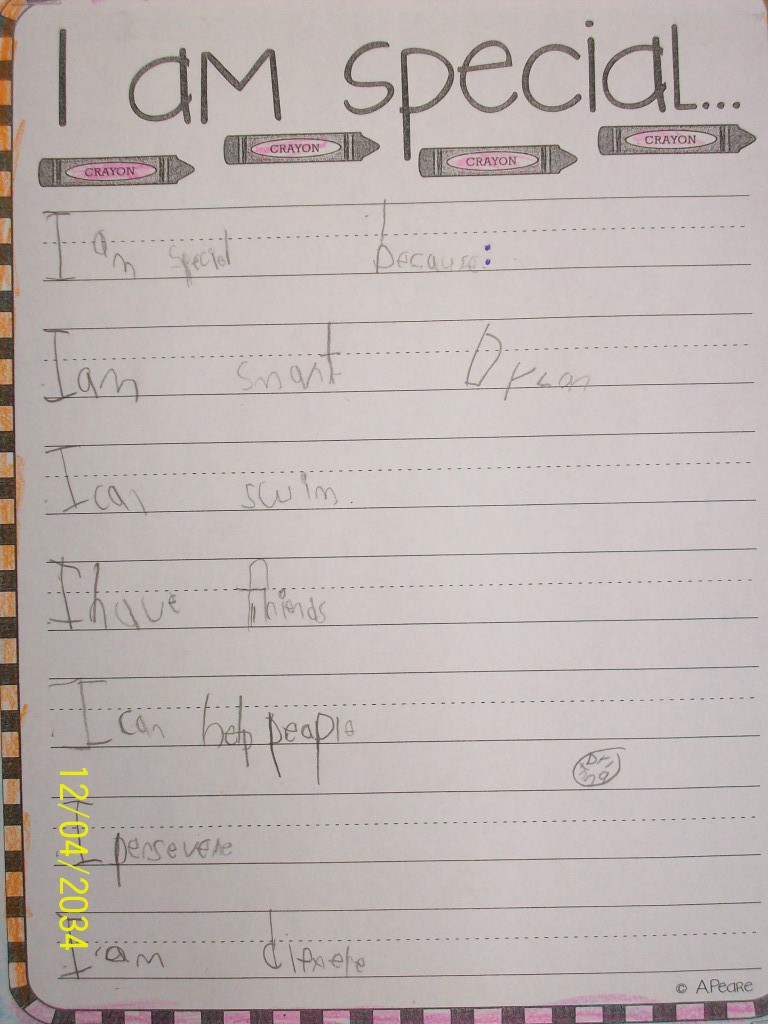 I am special...
CRAYON CRAYON CRAYON CRAYON
I am special because:
I am smart Dylan
I can swim.
I have friends
I can help people
I persevere
I am
12/04/2034
© A.Peare